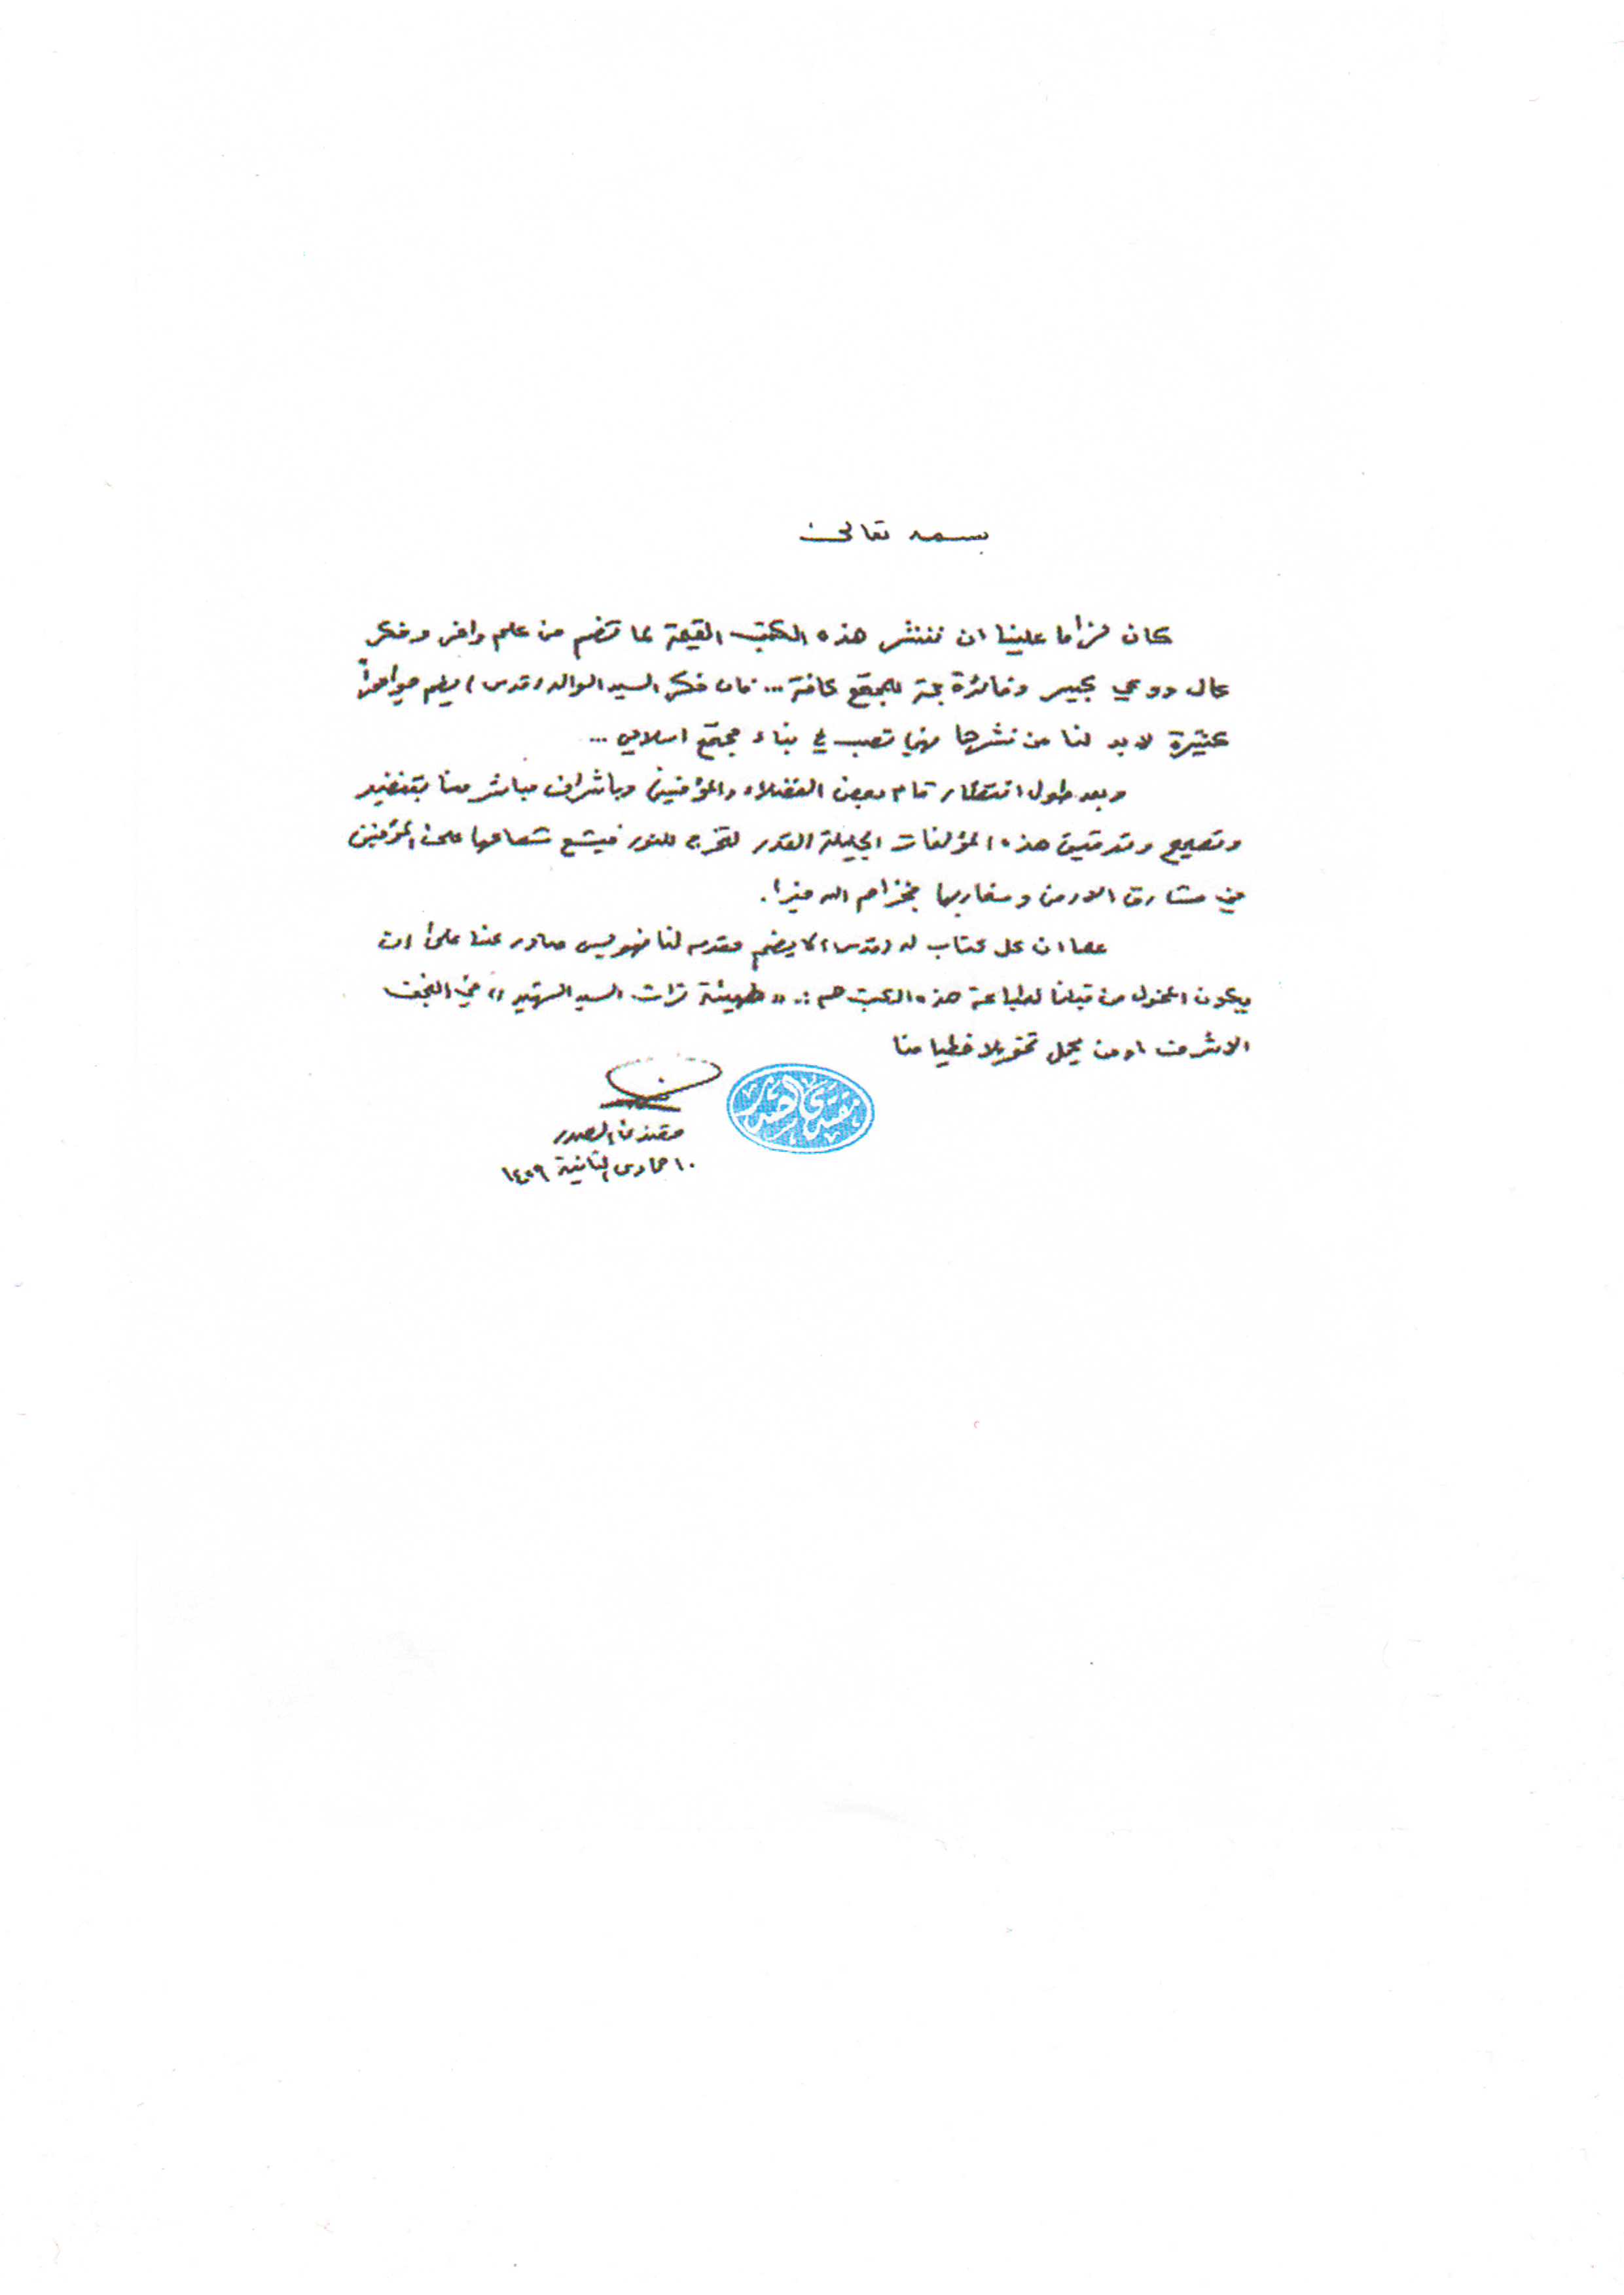 بسمه تعالى
كان لزاما علينا ان ننشر هذه الكتب القيمة لما تضم من علم وافر وفكر
عال ووعي كبير وفائدة جمة للمجتمع كافة ... فان فكر السيد الوالد (قدس) يضم جواهراً
كثيرة لا بد لنا من نشرها فهي تصب في بناء مجتمع اسلامي ...
وبعد طول انتظار قام بعض الفضلاء والمؤمنين وباشراف مباشر منا بتنضيد
وتصحيح وتدقيق هذه المؤلفات الجليلة القدر لتخرج للنور فيشع شعاعها على المؤمنين
في مشارق الارض ومغاربها فجزاهم الله خيرا.
كما ان كل كتاب له (قدس) لا يضم مقدمه لنا فهو ليس صادر عنا على ان
يكون المخول من قبلنا لطباعة هذه الكتب هم :. «هيئة تراث السيد الشهيد» في النجف
الاشرف او من يحمل تخويلا خطيا منا
مقتدى الصدر
مقتدى الصدر
١٠ جمادى الثانية ١٤٢٩